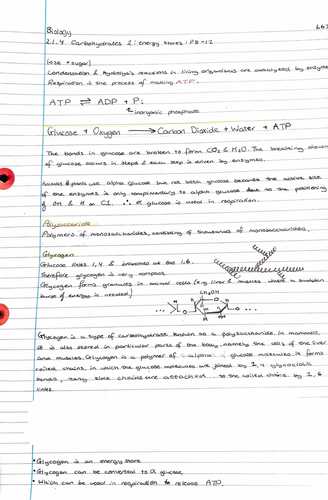 Biology
2.1.4 Carbohydrates 2: energy stores: P8-12
(ose = sugar)
Condensation & hydrolysis reactions in living organisms are catalysed by enzyme
Respiration is the process of making ATP.
ATP ⇌ ADP + Pi
inorganic phosphate
Glucose + Oxygen → Carbon Dioxide + Water + ATP
The bonds in glucose are broken to form CO2 & H2O. The breaking down
of glucose occurs in steps & each step is driven by enzymes.
Animals & plants use alpha glucose but not beta glucose because the active site
of the enzymes is only complementary to alpha glucose due to the positioning
of OH & H on C1. ∴ α glucose is used in respiration.
Polysaccaride
Polymers of monosaccharides, consisting of thousands of monosaccharides.
Glycogen
Glucose links 1,4 & branches at the 1,6.
Therefore glycogen is very compact
Glycogen forms granules in animal cells (e.g liver & muscles where a sudden
burst of energy is needed)
CH2OH
O
H
OH
Glycogen is a type of carbohydrate known as a polysaccharide. In mammals,
it is also stored in particular parts of the body, namely the cells of the liver
and muscles. Glycogen is a polymer of alpha glucose molecules. It forms
coiled chains, in which the glucose molecules are joined by 1,4 glycosidic
bonds, many side chains are attached to the coiled chains by 1,6
links.
• Glycogen is an energy store
• Glycogen can be converted to α glucose
• Which can be used in respiration to release ATP.